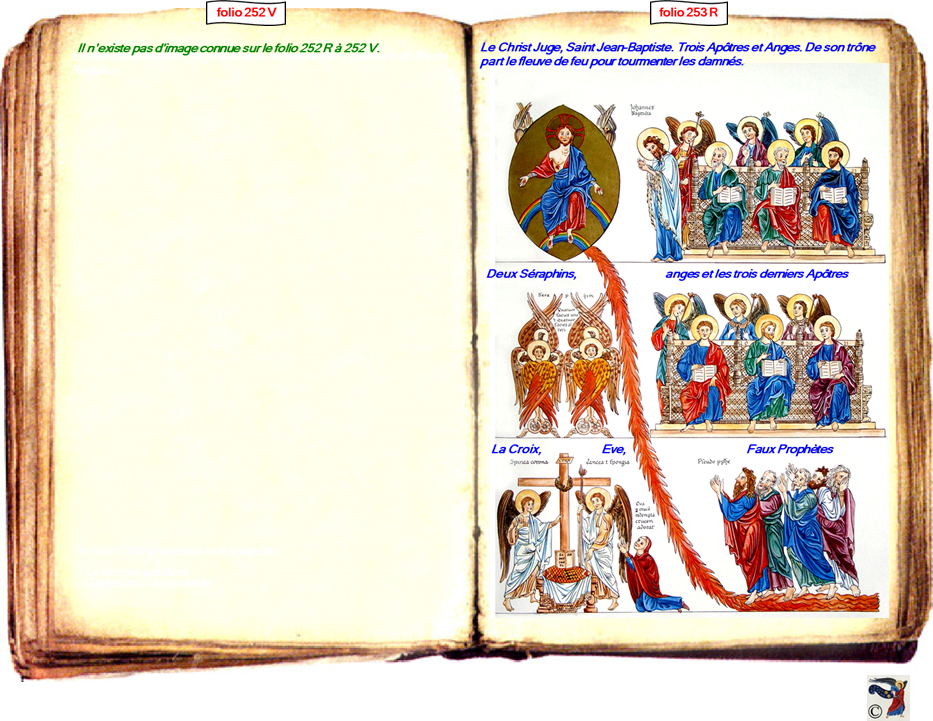 folio 252 V
Il n'existe pas d'image connue sur le folio 252 R à 252 V.
folio 253 R
Le Christ Juge, Saint Jean-Baptiste. Trois Apôtres et Anges. De son trône
part le fleuve de feu pour tourmenter les damnés.
Johannes
Baptista
Deux Séraphins,
anges et les trois derniers Apôtres
La Croix,
Eve,
Faux Prophètes
Spinea corona
Lancea t spongia
crucem
adorat
©